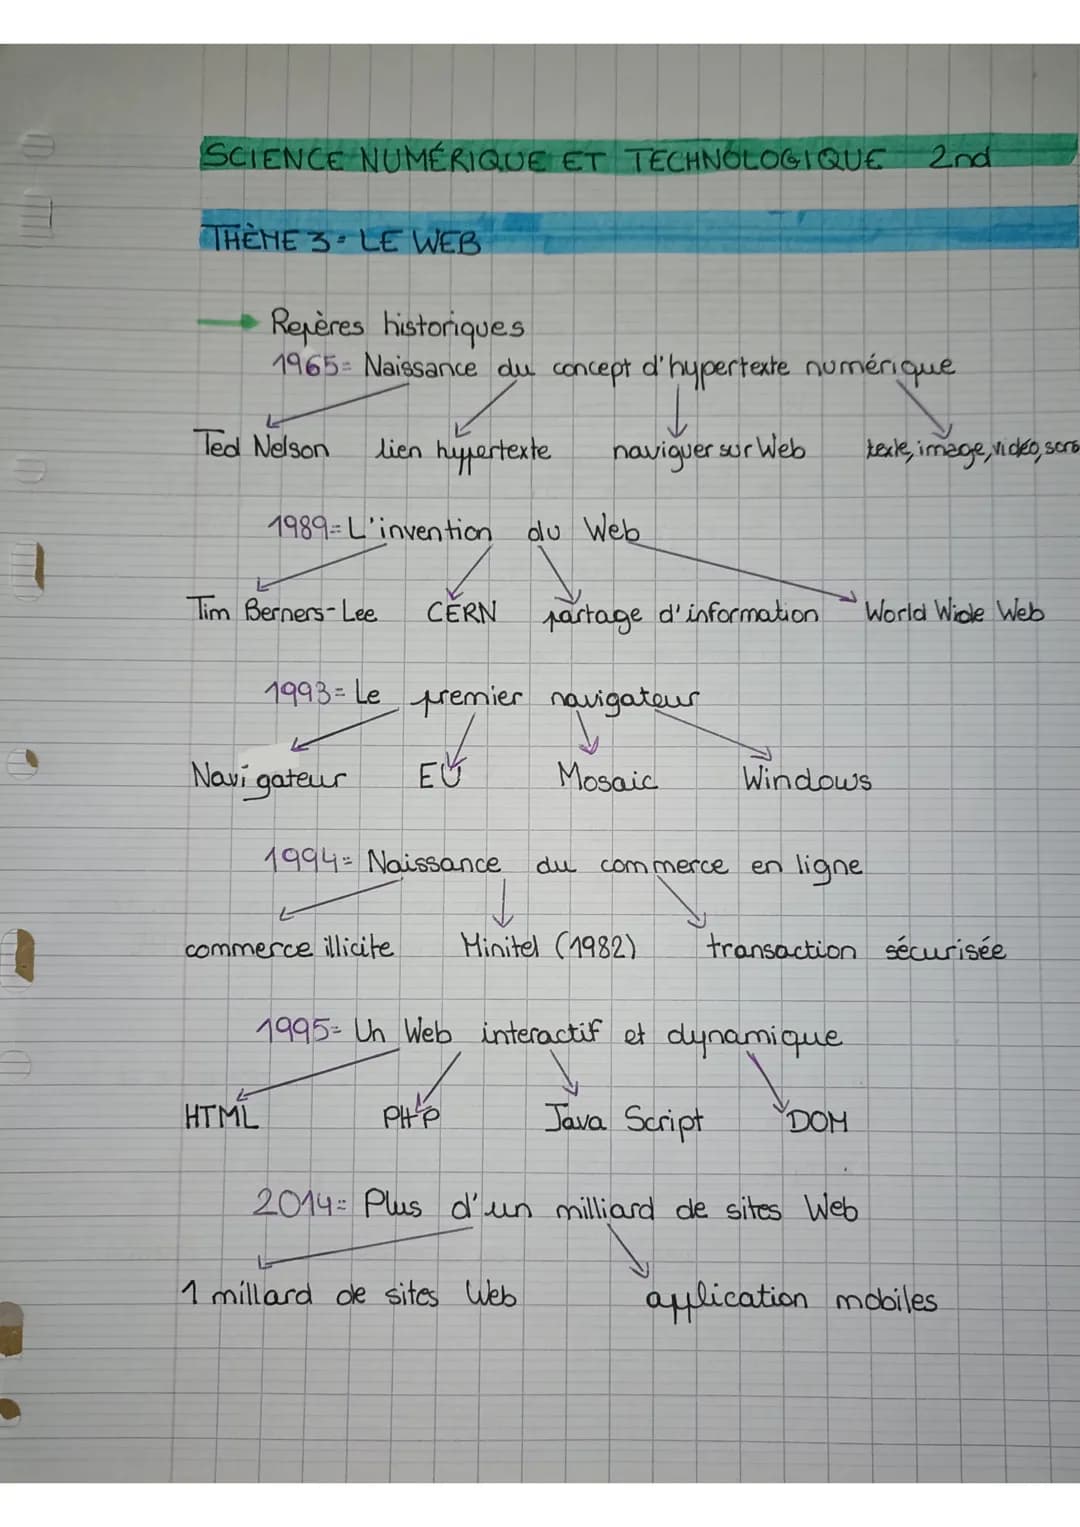 SCIENCE NUMÉRIQUE ET TECHNOLOGIQUE 2nd
THÈME 3: LE WEB
Repères historiques
1965= Naissance du concept d'hypertexte numérique
Ted Nelson lien hypertexte naviguer sur Web texte, image, vidéo, sons
1989= L'invention du Web
Tim Berners-Lee CERN partage d'information World Wide Web
1993= Le premier navigateur
Navigateur EU Mosaic Windows
1994= Naissance du commerce en ligne
commerce illicite Minitel (1982) transaction sécurisée
1995= Un Web interactif et dynamique
HTML PHP Java Script DOM
2014= Plus d'un milliard de sites Web
1 millard de sites Web application mobiles